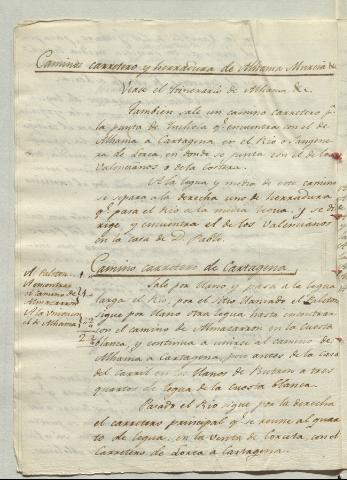 Caminos carretero y herradura de Alhama Murcia &c
Vease el Itinerario de Alhama &c.
Tambien sale un camino carretero p.r
la punta de q.e encuentra con el de
Alhama a Cartagena en el Rio o Sangone
ra de Lorca, en donde se junta con el de los
Valencianos o de la Costera.
A la legua y media de este camino
se separa a la derecha uno de herradura
q.e para el Rio a la media legua, y se di
rige y encuentra el de los Valencianos
en la casa de D. Pablo.
Camino carretero de Cartagena
Sale por llano y pasa a la legua
larga el Rio, por el sitio llamado el
sigue por llano otra legua hasta encontrar
con el camino de Almazarron en la Cuesta
blanca, y continua a unirse al camino de
Alhama a Cartagena, poco antes de la Casa
del Carril en los llanos de a tres
quartos de legua de la Cuesta blanca.
Pasado el Rio sigue por la derecha
el carretero principal q.e se reune al quar
to de legua, en la Venta de con el
Carretero de Lorca a Cartagena.
Al
Al encontrar
el camino de
Almazarron
A la Union con
el de Alhama